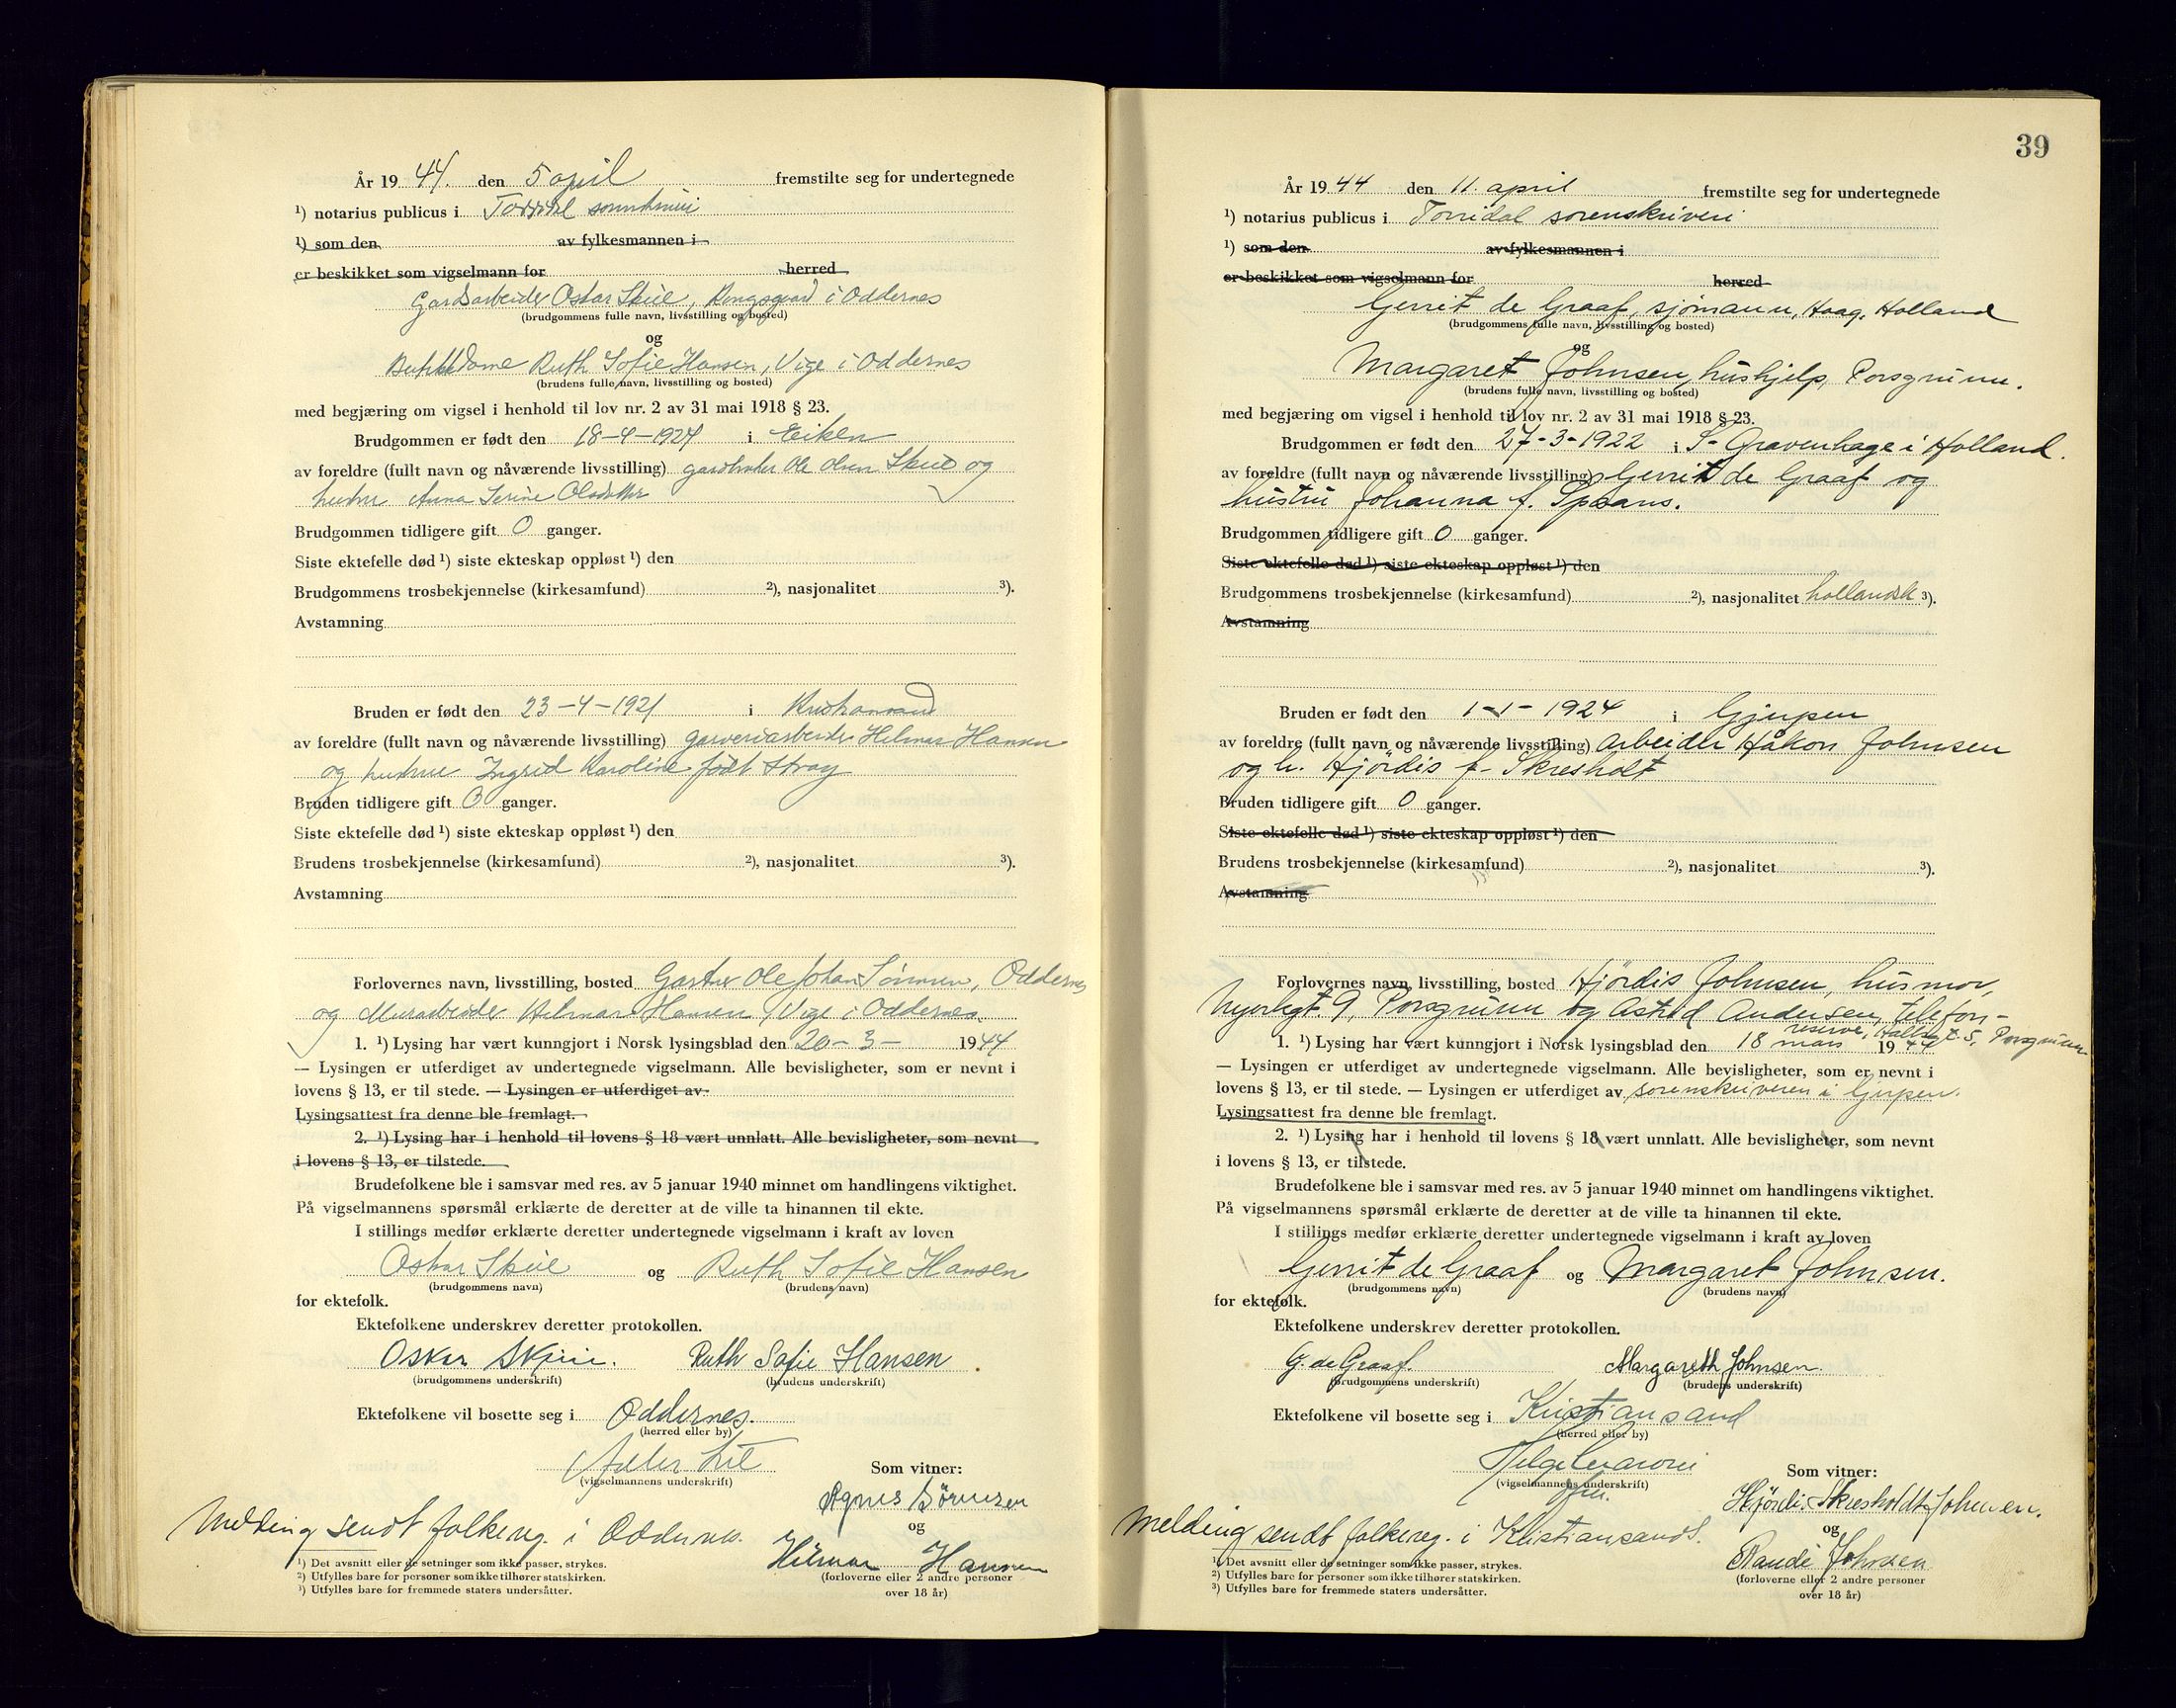 År 1944. den 5 april fremstilte seg for undertegnede
¹) notarius publicus i Torridal
¹) som den av fylkesmannen i
er beskikket som vigselmann for herred
Gardsarbeider Oskar Skeie, Kongsgaard i Oddernes
(brudgommens fulle navn, livsstilling og bosted)
og
Ruth Sofie Hansen, Vige i Oddernes
(brudens fulle navn, livsstilling og bosted)
med begjæring om vigsel i henhold til lov nr. 2 av 31 mai 1918 § 23.
Brudgommen er født den 18-4-1924 i Eiken
av foreldre (fullt navn og nåværende livsstilling) gardbruker Ole Olsen Skeie og
hustru Anna Serine Olsdatter
Brudgommen tidligere gift 0 ganger.
Siste ektefelle død ¹) siste ekteskap oppløst ¹) den
Brudgommens trosbekjennelse (kirkesamfund) ²), nasjonalitet ³).
Avstamning
Bruden er født den 23-4-1921 i Kristiansand
av foreldre (fullt navn og nåværende livsstilling) garveriarbeider Helmar Hansen
og hustru Ingrid Karoline født Stray
Bruden tidligere gift 0 ganger.
Siste ektefelle død ¹) siste ekteskap oppløst ¹) den
Brudens trosbekjennelse (kirkesamfund) ²), nasjonalitet ³).
Avstamning
Forlovernes navn, livsstilling, bosted Gartner Ole Johan Sörensen, Oddernes
og Murarbeider Hilmar Hansen, Vige i Oddernes.
1. ¹) Lysing har vært kunngjort i Norsk lysingsblad den 20-3- 1944
— Lysingen er utferdiget av undertegnede vigselmann. Alle bevisligheter, som er nevnt i
lovens § 13, er til stede. — Lysingen er utferdiget av
Lysingsattest fra denne ble fremlagt.
2. ¹) Lysing har i henhold til lovens § 18 vært unnlatt. Alle bevisligheter, som nevnt
i lovens § 13, er tilstede.
Brudefolkene ble i samsvar med res. av 5 januar 1940 minnet om handlingens viktighet.
På vigselmannens spørsmål erklærte de deretter at de ville ta hinannen til ekte.
I stillings medfør erklærte deretter undertegnede vigselmann i kraft av loven
Oskar Skeie og Ruth Sofie Hansen
(brudgommens navn) (brudens navn)
for ektefolk.
Ektefolkene underskrev deretter protokollen.
Oskar Skeie. Ruth Sofie Hansen
(brudgommens underskrift) (brudens underskrift)
Ektefolkene vil bosette seg i Oddernes.
(herred eller by)
(vigselmannens underskrift)
Som vitner:
Agnes Sörensen
og
Hilmar Hansen
(forloverne eller 2 andre personer
over 18 år)
Melding sendt folkereg. i Oddernes.
¹) Det avsnitt eller de setninger som ikke passer, strykes.
²) Utfylles bare for personer som ikke tilhører statskirken.
³) Utfylles bare for fremmede staters undersåtter.
39
År 1944 den 11. april fremstilte seg for undertegnede
¹) notarius publicus i Torridal sorenskriveri
¹) som den av fylkesmannen i
er beskikket som vigselmann for herred
Gerrit de Graaf, sjömann, Haag, Holland
(brudgommens fulle navn, livsstilling og bosted)
og
Margaret Johnsen, hushjelp, Porsgrunn.
(brudens fulle navn, livsstilling og bosted)
med begjæring om vigsel i henhold til lov nr. 2 av 31 mai 1918 § 23.
Brudgommen er født den 27-3-1922 i S-Gravenhage i Holland.
av foreldre (fullt navn og nåværende livsstilling) Gerrit de Graaf og
hustru Johanna f. Spaans.
Brudgommen tidligere gift 0 ganger.
Siste ektefelle død ¹) siste ekteskap oppløst ¹) den
Brudgommens trosbekjennelse (kirkesamfund) ²), nasjonalitet hollandsk ³).
Avstamning
Bruden er født den 1-1-1924 i Gjerpen
av foreldre (fullt navn og nåværende livsstilling) Arbeider Håkon Johnsen
og h. Hjördis f. Skresholt
Bruden tidligere gift 0 ganger.
Siste ektefelle død ¹) siste ekteskap oppløst ¹) den
Brudens trosbekjennelse (kirkesamfund) ²), nasjonalitet ³).
Avstamning
Forlovernes navn, livsstilling, bosted Hjördis Johnsen, husmor,
9, Porsgrunn og Astrid Andersen, telefon-
reserve, 5, Porsgrunn
1. ¹) Lysing har vært kunngjort i Norsk lysingsblad den 18 mars 1944
— Lysingen er utferdiget av undertegnede vigselmann. Alle bevisligheter, som er nevnt i
lovens § 13, er til stede. — Lysingen er utferdiget av sorenskriveren i Gjerpen.
Lysingsattest fra denne ble fremlagt.
2. ¹) Lysing har i henhold til lovens § 18 vært unnlatt. Alle bevisligheter, som nevnt
i lovens § 13, er tilstede.
Brudefolkene ble i samsvar med res. av 5 januar 1940 minnet om handlingens viktighet.
På vigselmannens spørsmål erklærte de deretter at de ville ta hinannen til ekte.
I stillings medfør erklærte deretter undertegnede vigselmann i kraft av loven
Gerrit de Graaf og Margaret Johnsen.
(brudgommens navn) (brudens navn)
for ektefolk.
Ektefolkene underskrev deretter protokollen.
G. de Graaf. Margareth Johnsen.
(brudgommens underskrift) (brudens underskrift)
Ektefolkene vil bosette seg i Kristiansand
(herred eller by)
(vigselmannens underskrift)
Som vitner:
Hjördis Skresholdt Johnsen.
og
Randi Johnsen
(forloverne eller 2 andre personer
over 18 år)
Melding sendt folkereg. i Kristiansand S.
¹) Det avsnitt eller de setninger som ikke passer, strykes.
²) Utfylles bare for personer som ikke tilhører statskirken.
³) Utfylles bare for fremmede staters undersåtter.